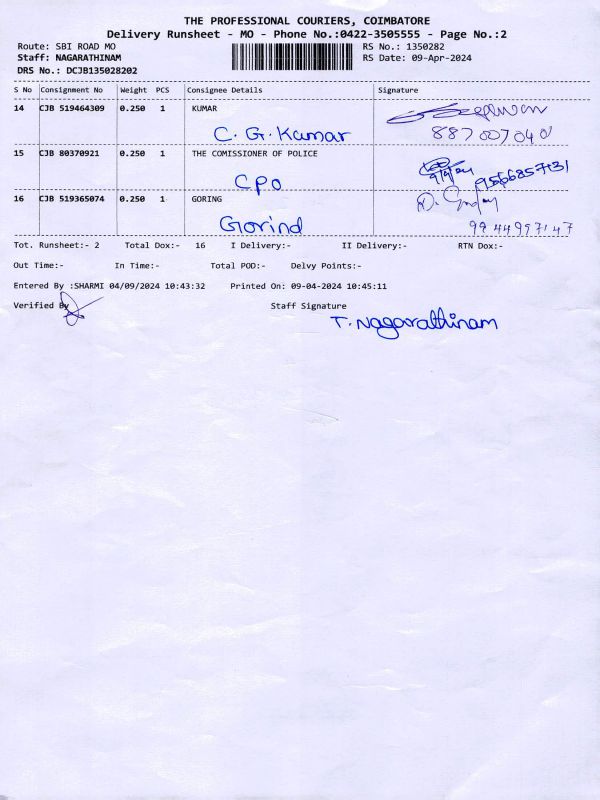 THE PROFESSIONAL COURIERS, COIMBATORE
Delivery Runsheet - MO - Phone No.:0422-3505555 - Page No.:2
Route: SBI ROAD MO RS No.: 1350282
Staff: NAGARATHINAM RS Date: 09-Apr-2024
DRS No.: DCJB135028202
S No Consignment No Weight PCS Consignee Details Signature
14 CJB 519464309 0.250 1 KUMAR
C. G. Kumar 887007040
15 CJB 80370921 0.250 1 THE COMISSIONER OF POLICE
CPO 9/4/24 9566857131
16 CJB 519365074 0.250 1 GORING
Gorind 9944997147
Tot. Runsheet:- 2 Total Dox:- 16 I Delivery:- II Delivery:- RTN Dox:-
Out Time:- In Time:- Total POD:- Delvy Points:-
Entered By :SHARMI 04/09/2024 10:43:32 Printed On: 09-04-2024 10:45:11
Verified By Staff Signature
T. Nagarathinam